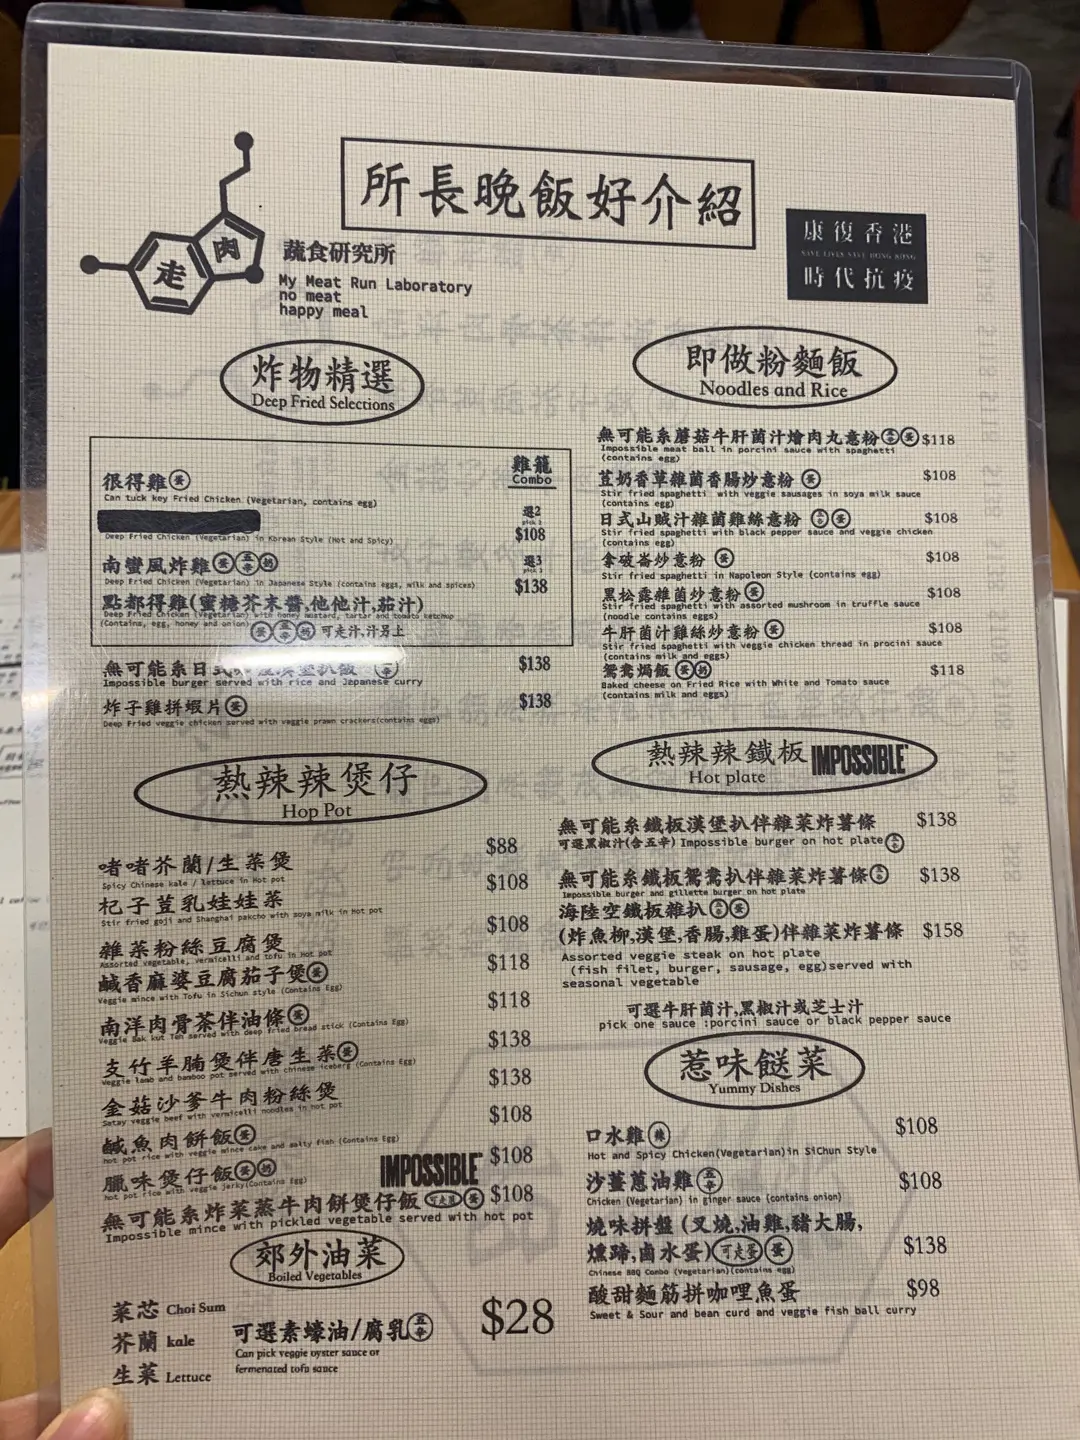 所長晚飯好介紹
走肉
蔬食研究所
My Meat Run Laboratory
no meat
happy meal
康復香港
SAVE LIVES SAVE HONG KONG
時代抗疫
炸物精選
Deep Fried Selections
雞籠
Combo
很得雞(蛋)
Can tuck key Fried Chicken (Vegetarian, contains egg)
選2
pick 2
$108
Deep Fried Chicken (Vegetarian) in Korean Style (Hot and Spicy)
南蠻風炸雞(蛋)(五辛)(奶)
選3
pick 3
$138
Deep Fried Chicken (Vegetarian) in Japanese Style (contains eggs, milk and spices)
點都得雞(蜜糖芥末醬,他他汁,茄汁)
Deep Fried Chicken (Vegetarian) with honey mustard, tartar and tomato ketchup
(Contains, egg, honey and onion)
(蛋)(五辛)(奶)可走汁,汁另上
無可能系日式 漢堡扒飯 $138
Impossible burger served with rice and Japanese curry
炸子雞拼蝦片(蛋) $138
Deep Fried veggie chicken served with veggie prawn crackers(contains eggs)
熱辣辣煲仔
Hop Pot
啫啫芥蘭/生菜煲 $88
Spicy Chinese kale / lettuce in Hot pot
杞子荳乳娃娃菜 $108
Stir fried goji and Shanghai pakcho with soya milk in Hot pot
雜菜粉絲豆腐煲 $108
Assorted vegetable, vermicelli and tofu in hot pot
鹹香麻婆豆腐茄子煲(蛋) $118
Veggie mince with Tofu in Sichun style (Contains Egg)
南洋肉骨茶伴油條(蛋) $118
Veggie Bak kut Teh served with deep fried bread stick (Contains Egg)
支竹羊腩煲伴唐生菜(蛋) $138
Veggie lamb and bamboo pot served with chinese iceberg (Contains Egg)
金菇沙爹牛肉粉絲煲 $138
Satay veggie beef with vermicelli noodles in hot pot
鹹魚肉餅飯(蛋) $108
hot pot rice with veggie mince cake and salty fish (Contains Egg)
臘味煲仔飯(蛋)(奶) IMPOSSIBLE $108
hot pot rice with veggie jerky(Contains Egg)
無可能系炸菜蒸牛肉餅煲仔飯(可走蛋)(蛋) $108
Impossible mince with pickled vegetable served with hot pot
郊外油菜
Boiled Vegetables
菜芯 Choi Sum
芥蘭 kale
生菜 Lettuce
可選素蠔油/腐乳(五辛)
Can pick veggie oyster sauce or
fermenated tofu sauce
$28
即做粉麵飯
Noodles and Rice
無可能系蘑菇牛肝菌汁燴肉丸意粉(五辛)(蛋) $118
Impossible meat ball in porcini sauce with spaghetti
(contains egg)
荳奶香草雜菌香腸炒意粉(蛋) $108
Stir fried spaghetti with veggie sausages in soya milk sauce
(contains egg)
日式山賊汁雜菌雞絲意粉(五辛)(蛋) $108
Stir fried spaghetti with black pepper sauce and veggie chicken
(contains egg)
拿破崙炒意粉(蛋) $108
Stir fried spaghetti in Napoleon Style (contains egg)
黑松露雜菌炒意粉(蛋) $108
Stir fried spaghetti with assorted mushroom in truffle sauce
(noodle contains eggs)
牛肝菌汁雞絲炒意粉(蛋) $108
Stir fried spaghetti with veggie chicken thread in procini sauce
(contains milk and eggs)
鴛鴦焗飯(蛋)(奶) $118
Baked cheese on Fried Rice with White and Tomato sauce
(contains milk and eggs)
熱辣辣鐵板 IMPOSSIBLE
Hot plate
無可能系鐵板漢堡扒伴雜菜炸薯條 $138
可選黑椒汁(含五辛) Impossible burger on hot plate(五辛)
無可能系鐵板鴛鴦扒伴雜菜炸薯條(五辛) $138
Impossible burger and gillette burger on hot plate
海陸空鐵板雜扒(五辛)(蛋)
(炸魚柳,漢堡,香腸,雞蛋)伴雜菜炸薯條 $158
Assorted veggie steak on hot plate
(fish filet, burger, sausage, egg)served with
seasonal vegetable
可選牛肝菌汁,黑椒汁或芝士汁
pick one sauce :porcini sauce or black pepper sauce
惹味餸菜
Yummy Dishes
口水雞(辣) $108
Hot and Spicy Chicken(Vegetarian)in SiChun Style
沙薑蔥油雞(五辛) $108
Chicken (Vegetarian) in ginger sauce (contains onion)
燒味拼盤 (叉燒,油雞,豬大腸,
燻蹄,鹵水蛋)(可走蛋)(蛋) $138
Chinese BBQ Combo (Vegetarian)(contains egg)
酸甜麵筋拼咖哩魚蛋 $98
Sweet & Sour and bean curd and veggie fish ball curry